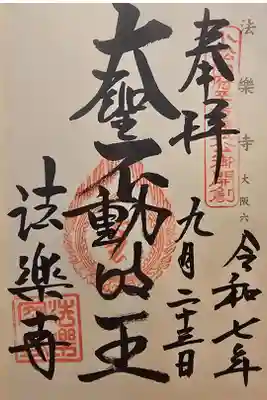 法樂寺 大阪六
令和七年
九月二十三日
奉拝
大聖不動明王
法樂寺